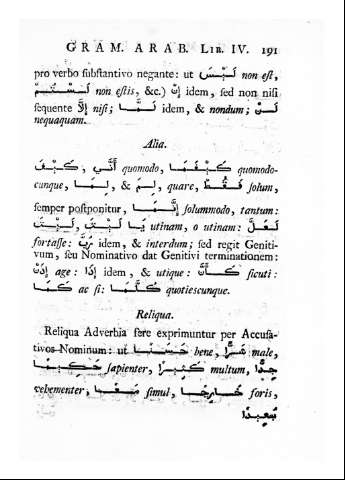 GRAM. ARAB. LIB. IV. 191
pro verbo ſubſtantivo negante: ut لَيْسَ non eſt,
لَسْتُمْ non eſtis, &c.) إِنْ idem, ſed non niſi
ſequente إِلَّا niſi; لَمَّا idem, & nondum; لَنْ
nequaquam.
Alia.
كَيْفَ, أَنَّى quomodo, كَيْفَمَا quomodo-
cunque, لِمَا, & لِمَ, quare, فَقَطْ ſolum,
ſemper poſtponitur, إِنَّمَا ſolummodo, tantum:
لَيْتَ, يَا لَيْتَ utinam, o utinam: لَعَلَّ
fortaſſe: رُبَّ idem, & interdum; ſed regit Geniti-
vum, ſeu Nominativo dat Genitivi terminationem:
إِذَنْ age: إِذَا idem, & utique: كَأَنَّ ſicuti:
كَمَا ac ſi: كُلَّمَا quotieſcunque.
Reliqua.
Reliqua Adverbia fere exprimuntur per Accuſa-
tivos Nominum: ut حَسَنًا bene, شَرًّا male,
حَكِيمًا ſapienter, كَثِيرًا multum, جِدًّا
vehementer, مَعًا ſimul, خَارِجًا foris,
بَعِيدًا